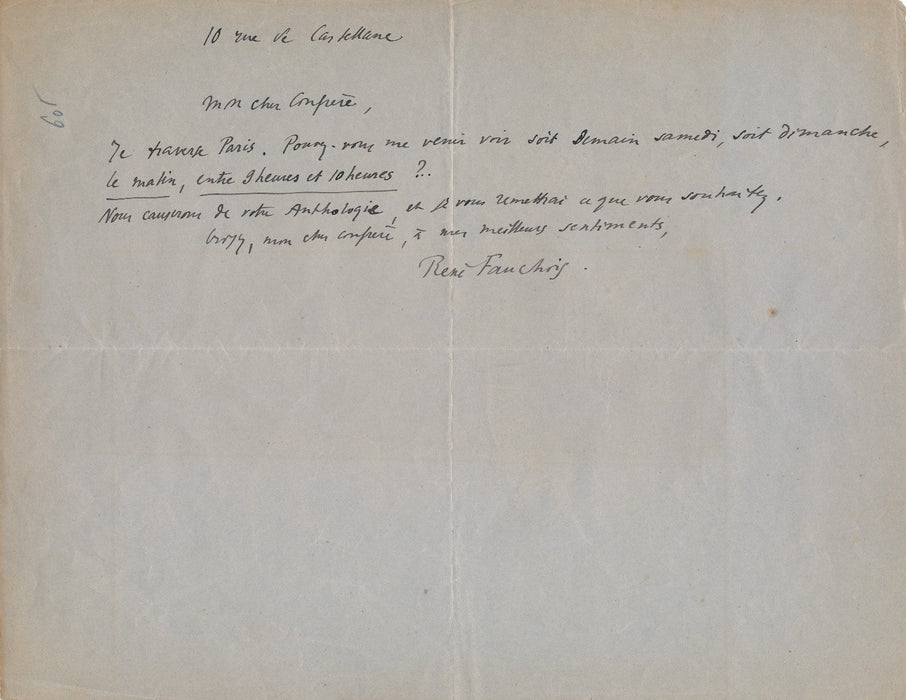 10 rue de Castellane
609
Mon cher Confrère,
Je traverse Paris. Pouvez-vous me venir voir soit Demain samedi, soit dimanche,
le matin, entre 9 heures et 10 heures ?..
Nous causerons de votre Anthologie, et je vous remettrai ce que vous souhaitez.
Croyez, mon cher confrère, à mes meilleurs sentiments,
René Fauchois.